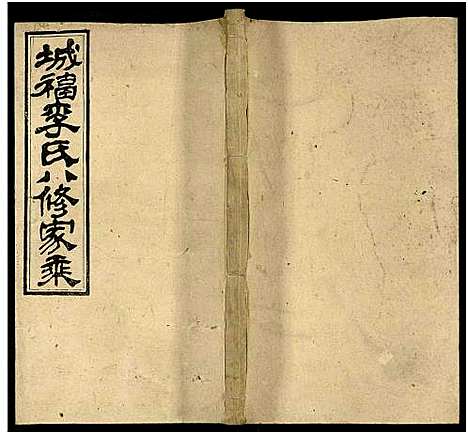 城福李氏八修家乘